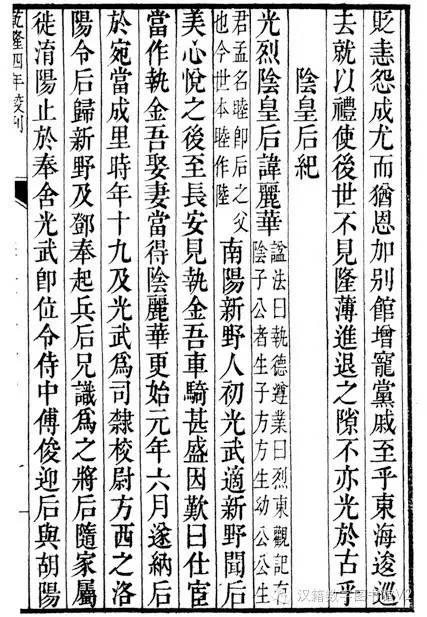 貶恚怨成尤而猶恩加別館增寵黨戚至乎東海逡巡
去就以禮使後世不見隆薄進退之隙不亦光於古乎
陰皇后紀
光烈陰皇后諱麗華
諡法曰執德遵業曰烈東觀記有
陰子公者生子方方生幼公公生
君孟名睦卽后之父
也今世本睦作陸
南陽新野人初光武適新野聞后
美心悅之後至長安見執金吾車騎甚盛因歎曰仕宦
當作執金吾娶妻當得陰麗華更始元年六月遂納后
於宛當成里時年十九及光武爲司隷校尉方西之洛
陽令后歸新野及鄧奉起兵后兄識爲之將后隨家屬
徙淯陽止於奉舍光武卽位令侍中傅俊迎后與胡陽
乾隆四年校刊
汉籍数字图书馆V2